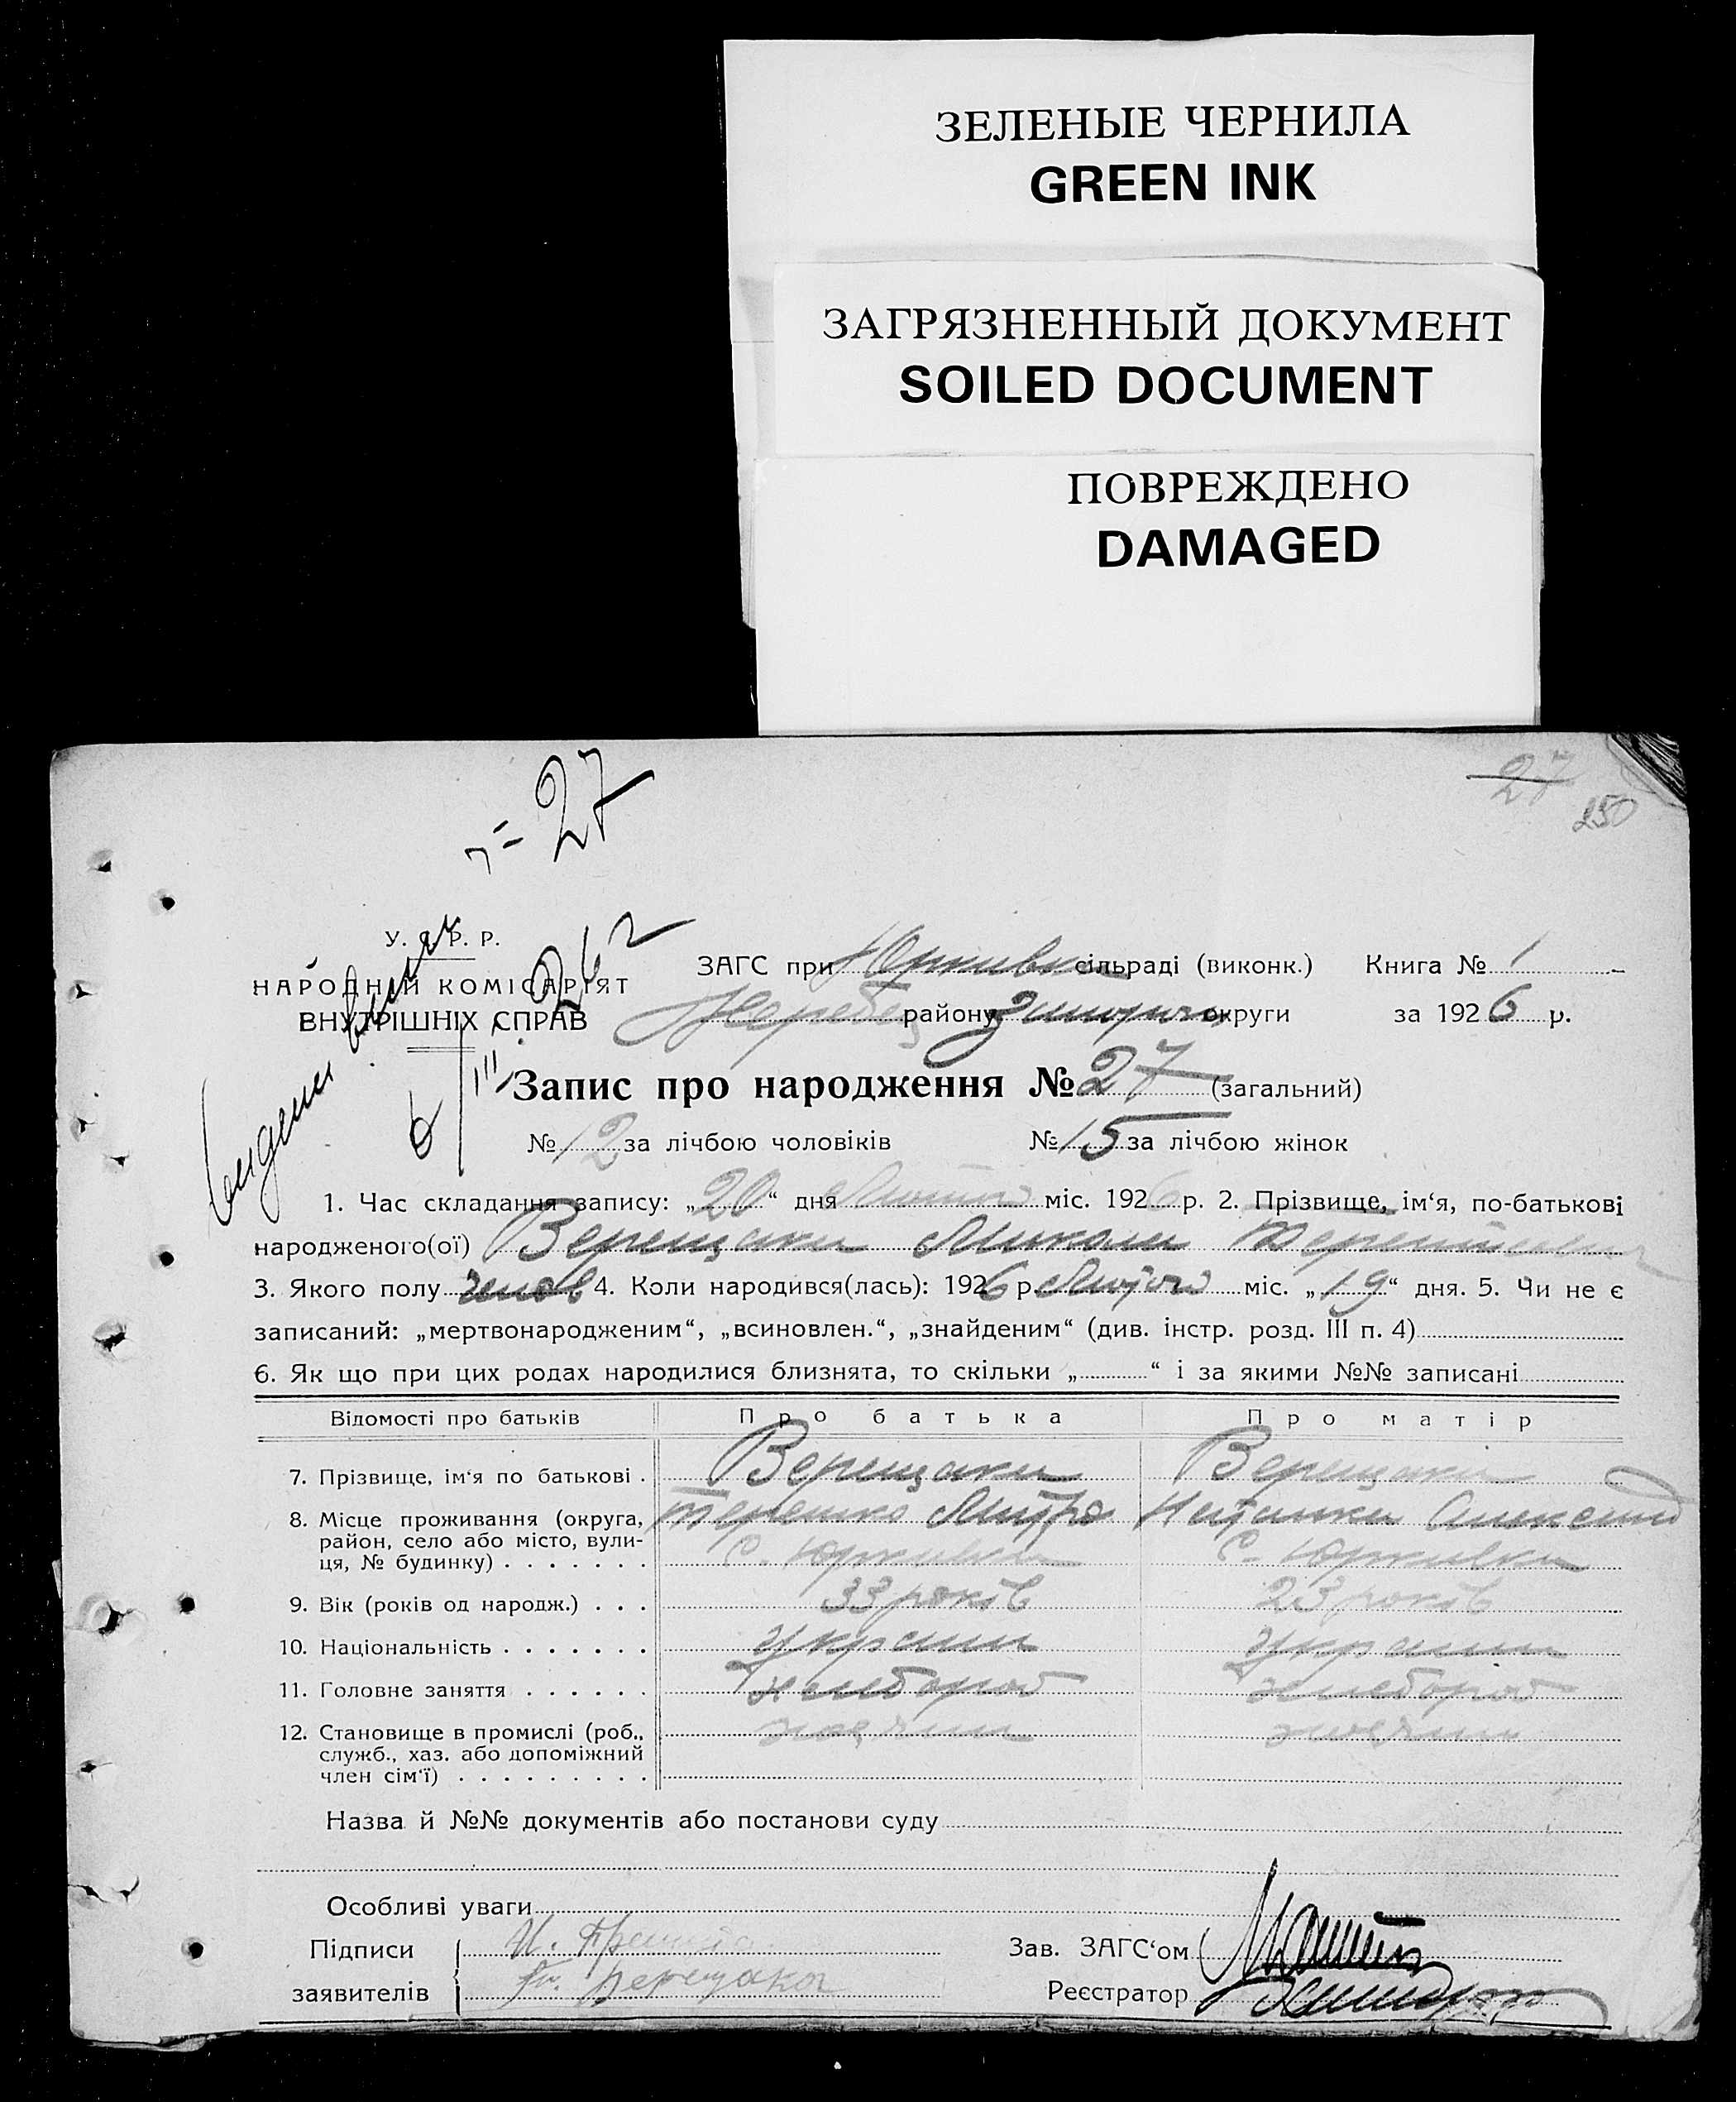 ЗЕЛЕНЫЕ ЧЕРНИЛА
GREEN INK
ЗАГРЯЗНЕННЫЙ ДОКУМЕНТ
SOILED DOCUMENT
ПОВРЕЖДЕНО
DAMAGED
27
= 27
250
У. С. Р. Р.
НАРОДНІЙ КОМІСАРІЯТ
ВНУТРІШНІХ СПРАВ
ЗАГС при Юрківка сільраді (виконк.) Книга № 1
району округи за 1926 р.
Запис про народження № 27 (загальний)
№ 12 за лічбою чоловіків № 15 за лічбою жінок
1. Час складання запису: „20“ дня Лютого міс. 1926 р. 2. Прізвище, ім‘я, по-батькові
народженого(ої) Верещака Микола
3. Якого полу чолов 4. Коли народився(лась): 1926 р. Лютого міс. „19“ дня. 5. Чи не є
записаний: „мертвонародженим“, „всиновлен.“, „знайденим“ (див. інстр. розд. III п. 4)
6. Як що при цих родах народилися близнята, то скільки „ “ і за якими №№ записані
Відомості про батьків Про батька Про матір
7. Прізвище, ім‘я по батькові . Верещака Верещака
8. Місце проживання (округа, Терешко Дмитро
район, село або місто, вули- с. Юрківка с. Юрківка
ця, № будинку)
9. Вік (років од народж.) . . . 33 років 23 років
10. Національність україн україн
11. Головне заняття хлебороб хлебороб
12. Становище в промислі (роб.,
служб., хаз. або допоміжний
член сім‘ї)
Назва й №№ документів або постанови суду
Особливі уваги
Підписи
Зав. ЗАГС‘ом
заявителів Верещака
Реєстратор